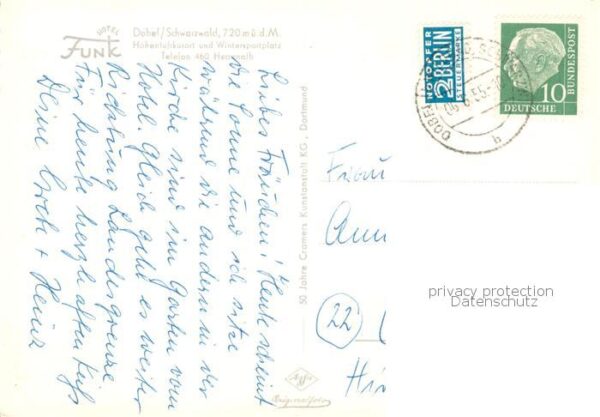 HOTEL
FUNK
Dobel/Schwarzwald, 720 m ü. d. M.
Höhenluftkurort und Wintersportplatz
Telefon 460 Herrenalb
Liebes Frauchen! Heute scheint
die Sonne und ich sitze
während die andern in der
Kirche sind im Garten vom
Hotel. Gleich geht es weiter
Richtung Landesgrenze.
Für heute herzhaften Kuß
Deine + Heinz
50 Jahre Cramers Kunstanstalt KG., Dortmund
Agfa
Originalfoto
NOTOPFER
2 BERLIN
STEUERMARKE
DOBEL
6.55
b
10
DEUTSCHE
BUNDESPOST
Frau
Ann
22
Hin
privacy protection
Datenschutz